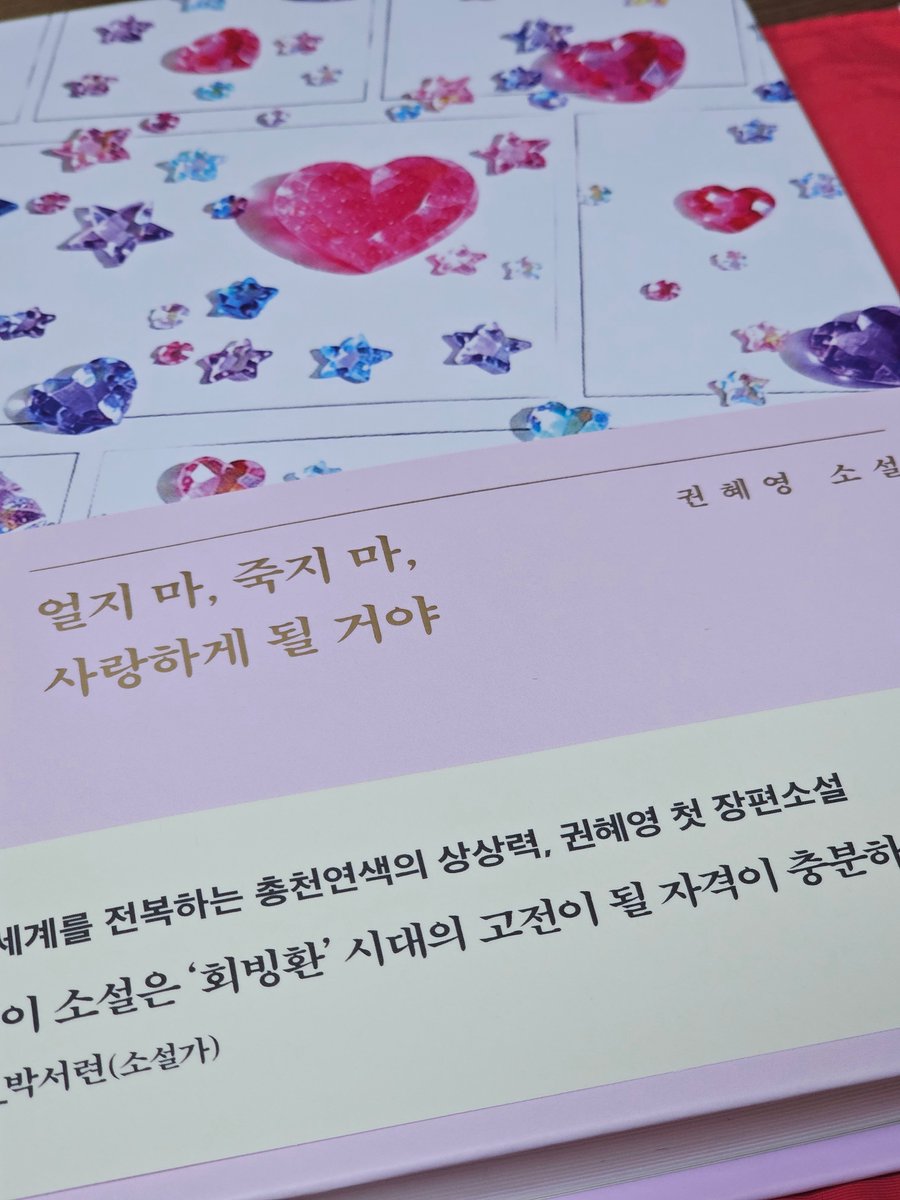 권혜영 소설
얼지 마, 죽지 마,
사랑하게 될 거야
세계를 전복하는 총천연색의 상상력, 권혜영 첫 장편소설
이 소설은 ‘회빙환’ 시대의 고전이 될 자격이 충분하
_박서련(소설가)